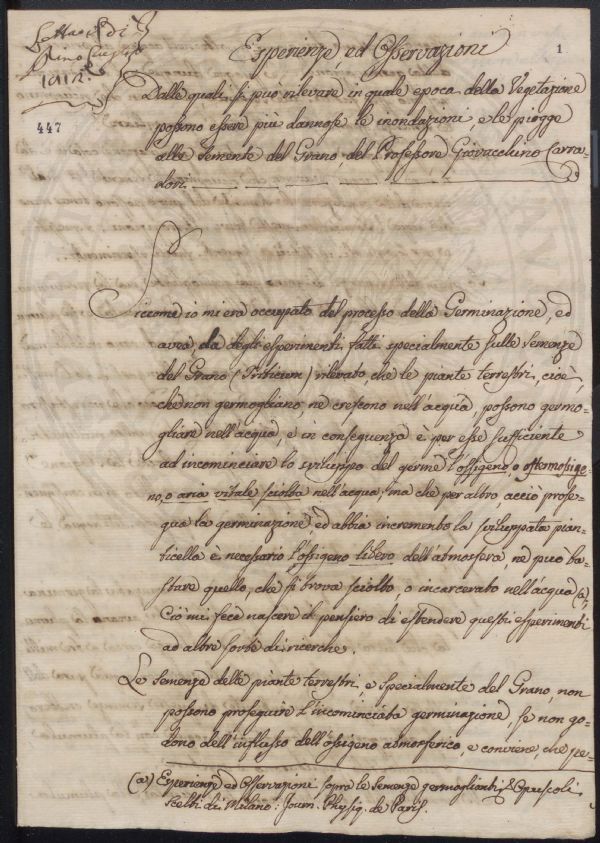 Esperienze, ed Osservazioni
1
447
Dalle quali si può rilevare in quale epoca della Vegetazione
possono essere più dannose le inondazioni, e le piogge
alle Semente del Grano, del Professore Giovacchino Carra-
dori.
Siccome io mi era occupato del processo della Germinazione, ed
avea, da degli esperimenti fatti specialmente sulle semenze
del Grano (Triticum) rilevato, che le piante terrestri, cioè,
che non germogliano, nè crescono nell'acqua, possono germo-
gliare nell'acqua, e in conseguenza è per esse sufficiente
ad incominciare lo sviluppo del germe l'ossigeno, o
no, o aria vitale sciolta nell'acqua; ma che per altro, acciò prose-
qua la germinazione, ed abbia incremento la sviluppata pian-
ticella è necessario l'ossigeno libero dell'atmosfera, nè può ba-
stare quello, che si trova sciolto, o incarcerato nell'acqua (a),
Ciò mi fece nascere il pensiero di estendere questi esperimenti
ad altre sorte di ricerche.
Le semenze delle piante terrestri, e specialmente del Grano, non
possono proseguire l'incominciata germinazione, se non go-
dono dell'influsso dell'ossigeno atmosferico, e conviene, che pe-
(a) Esperienze ed Osservazioni sopra le Semenze germoglianti. Opuscoli
Scelti di Milano. Journ. Physiq. de Paris.